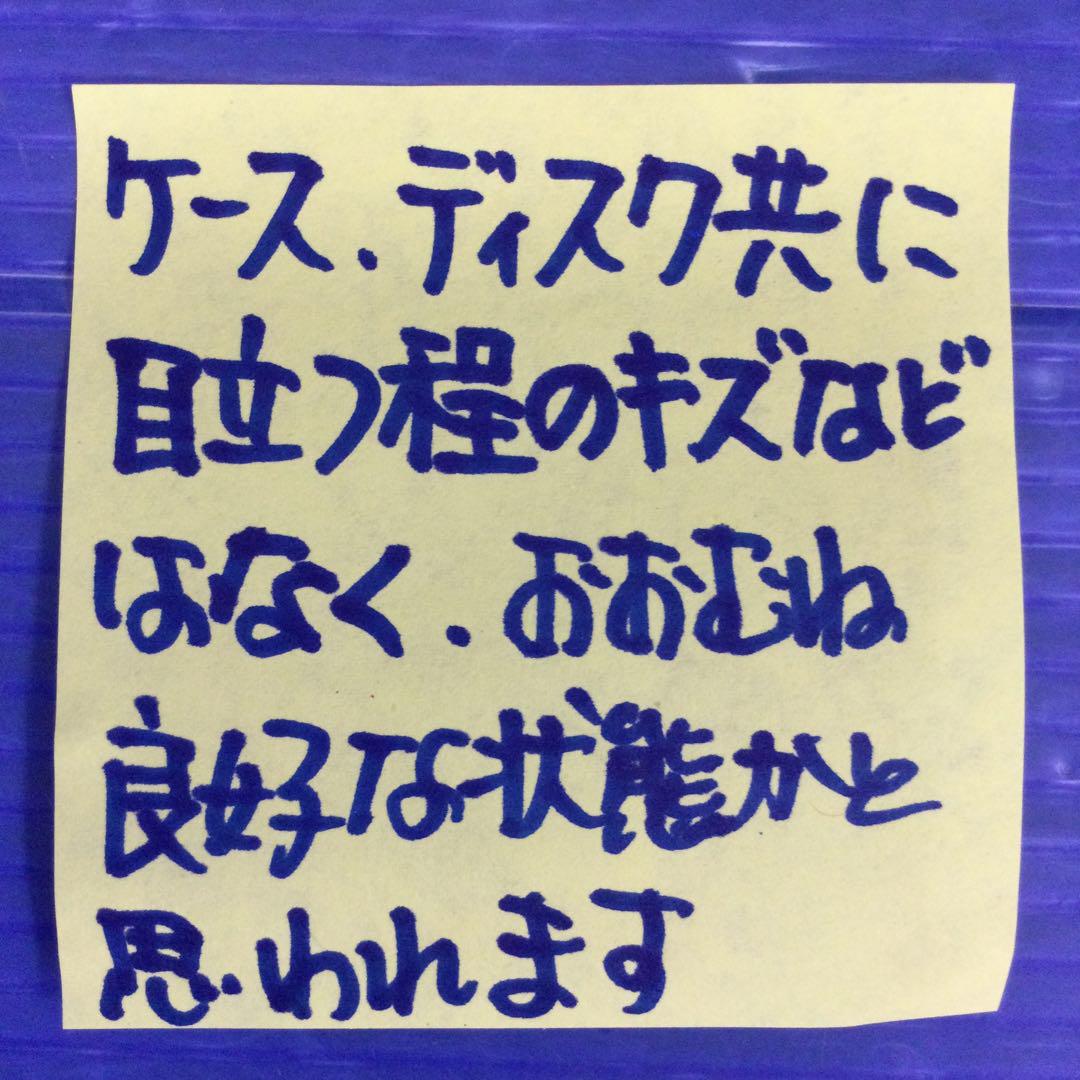 ケース、ディスク共に
目立つ程のキズなど
はなく、おおむね
良好な状態かと
思われます